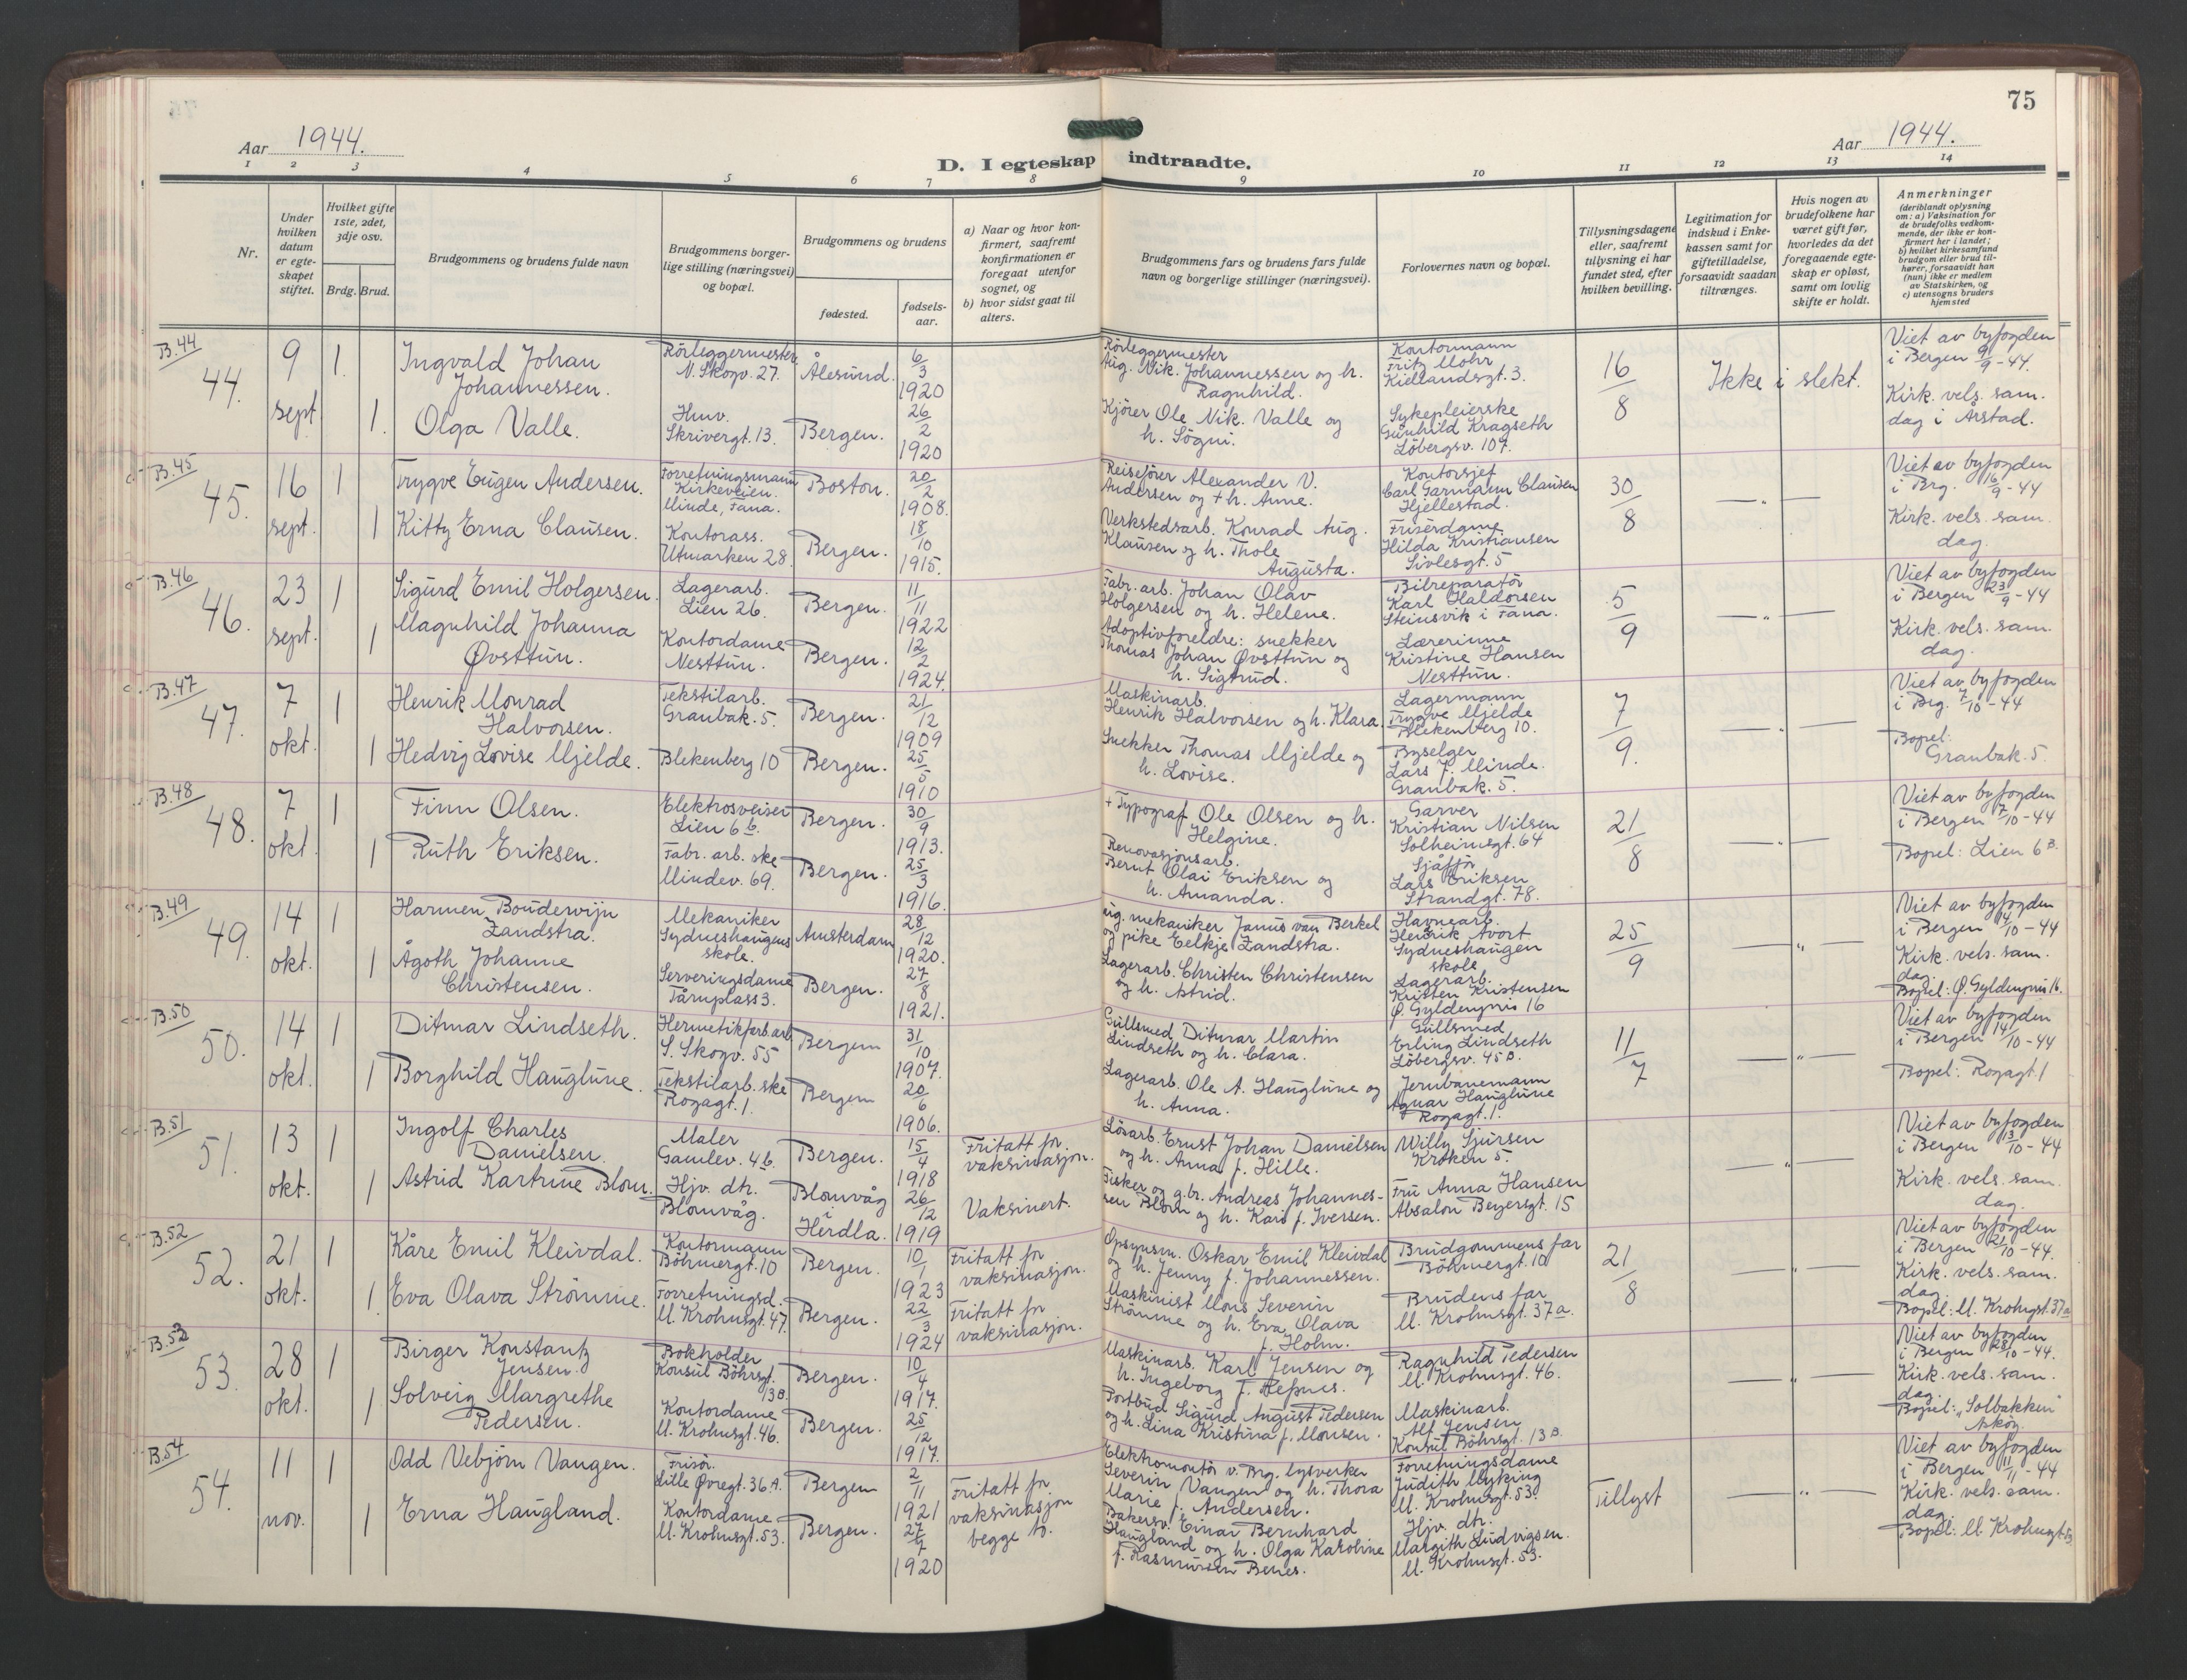 75
Aar 1944.
Aar 1944.
D. I egteskap indtraadte.
1 2 3 4 5 6 7 8 9 10 11 12 13 14
Nr.
Under hvilken datum er egteskapet stiftet.
Hvilket gifte 1ste, 2det, 3dje osv.
Brdg. Brud.
Brudgommens og brudens fulde navn
Brudgommens borgerlige stilling (næringsvei) og bopæl.
Brudgommens og brudens
fødested.
fødselsaar.
a) Naar og hvor konfirmert, saafremt konfirmationen er foregaat utenfor sognet, og
b) hvor sidst gaat til alters.
Brudgommens fars og brudens fars fulde navn og borgerlige stillinger (næringsvei).
Forlovernes navn og bopæl.
Tillysningsdagene eller, saafremt tillysning ei har fundet sted, efter hvilken bevilling.
Legitimation for indskud i Enkekassen samt for giftetilladelse, forsaavidt saadan tiltrænges.
Hvis nogen av brudefolkene har været gift før, hvorledes da det foregaaende egteskap er opløst, samt om lovlig skifte er holdt.
Anmerkninger
(deriblandt oplysning om: a) Vaksination for de brudefolks vedkommende, der ikke er konfirmert her i landet; b) hvilket kirkesamfund brudgom eller brud tilhører, forsaavidt han (hun) ikke er medlem av Statskirken, og c) utensogns bruders hjemsted
B.44
44.
9 sept 1
Ingvald Johan Johannessen.
Rörleggermester
N. Skogv. 27.
Ålesund.
6/3 1920
Rörleggermester
Aug. Nik. Johannessen og h. Ragnhild.
Kontormann
Fritz Mohr
Kiellandsgt. 3.
16/8
Ikke i slekt.
Viet av byfogden
i Bergen 9/9-44.
Kirk. vels. sam.
dag i Årstad.
1.
Olga Valle.
Husv.
Skrivergt. 13.
Bergen.
26/2 1920
Kjörer Ole Nik. Valle og
h. Sögni.
Sykepleierske
Gunhild Kragseth
Löbergsv. 107.
B.45
45.
16 sept. 1
Trygve Eugen Andersen.
Forretningsmann
Kirkeveien.
Minde, Fana.
Boston.
20/2 1908.
Reiseförer Alexander V.
Andersen og + h. Anne.
Kontorsjef
Carl Garmann Clausen
Hjellestad.
30/8
— " —
Viet av byfogden
i Brg. 16/9-44
Kirk. vels. sam.
dag.
1
Kitty Erna Clausen.
Kontorass.
Utmarken 28.
Bergen.
18/10 1915.
Verkstedsarb. Konrad Aug.
Klausen og h. Thole
Augusta.
Frisördame
Hilda Kristiansen
Sivlesgt. 5
B.46
46.
23 sept. 1
Sigurd Emil Holgersen.
Lagerarb.
Lien 26.
Bergen.
11/11 1922
Fabr. arb. Johan Olav
Holgersen og h. Helene.
Bilreparatör
Karl Haldorsen
Steinsvik i Fana.
5/9
— " —
Viet av byfogden
i Bergen 23/9-44
Kirk. vels. sam.
dag.
1
Magnhild Johanna
Øvsttun.
Kontordame
Nesttun.
Bergen.
12/2 1924.
Adoptivforeldre: snekker
Thomas Johan Øvsttun og
h. Sigtrud.
Lærerinne
Kristine Hansen
Nesttun.
B.47
47.
7 okt. 1
Henrik Monrad
Halvorsen.
Tekstilarb.
Granbak. 5.
Bergen.
21/12 1909
Maskinarb.
Henrik Halvorsen og h. Klara.
Lagermann
Trygve Mjelde
Blekenberg 10.
7/9.
— " —
Viet av byfogden
i Brg. 7/10-44
Bopel:
Granbak. 5.
1
Hedvig Lovise Mjelde.
Blekenberg 10
Bergen.
25/5 1910
Snekker Thomas Mjelde og
h. Lovise.
Byselger
Lars J. Minde.
Granbak. 5.
B.48
48.
7 okt. 1
Finn Olsen.
Elektrosveiser
Lien 6 b.
Bergen.
30/9 1913.
+ Typograf Ole Olsen og h.
Helgine.
Garver
Kristian Nilsen
Solheimsgt. 64
21/8
— " —
Viet av byfogden
i Bergen 7/10-44
Bopel: Lien 6 B.
1
Ruth Eriksen.
Fabr. arb. ske
Mindev. 69.
Bergen.
25/3 1916.
Renovasjonsarb.
Bernt Olai Eriksen og
h. Amanda.
Sjåffør
Lars Eriksen
Strandgt. 78.
B.49
49.
14 okt. 1
Harmen Boudewijn
Zandstra.
Mekaniker
Sydneshaugens
skole.
Amsterdam
28/12 1920.
mekaniker Janus van Berkel
og pike Eelkje Zandstra.
Havnearb.
Henrik Avort
Sydneshaugen
skole
25/9
" —
Viet av byfogden
i Bergen 14/10-44
Kirk. vels. sam.
dag.
Bopel: Ø. Gyldenpris 16.
1
Ågoth Johanne
Christensen.
Serveringsdame
Tårnplass 3.
Bergen.
27/8 1921.
Lagerarb. Christen Christensen
og h. Astrid.
Lagerarb.
Kristen Kristensen
Ø. Gyldenpris 16
B.50
50.
14 okt. 1
Ditmar Lindseth.
Hermetikfarb. arb.
S. Skogv. 55
Bergen
31/10 1907.
Gullsmed Ditmar Martin
Lindseth og h. Clara.
Gullsmed
Erling Lindseth
Löbergsv. 45 B.
11/7
— " —
Viet av byfogden
i Bergen 14/10-44
Bopel: Rogagt. 1
1
Borghild Hauglune.
Tekstilarb. ske
Rogagt. 1.
Bergen
20/6 1906.
Lagerarb. Ole A. Hauglune og
h. Anna.
Jernbanemann
Agnar Hauglune
Rogagt. 1.
B.51
51.
13 okt. 1
Ingolf Charles
Danielsen.
Maler
Gamlev. 4 b.
Bergen.
15/4 1918
Fritatt for
vaksinasjon.
Lösarb. Ernst Johan Danielsen
og h. Anna f. Hille.
Willy Sjursen
Kroken 5.
— " —
Viet av byfogden
i Bergen 13/10-44
Kirk. vels. sam.
dag.
1
Astrid Kartrine Blom.
Hjv. dtr.
Blomvåg.
Blomvåg
i
Herdla.
26/12 1919
Vaksinert.
Fisker og g.br. Andreas Johannes-
sen Blom og h. Kari f. Iversen.
Fru Anna Hansen
Absalon Beyersgt. 15
B.52
52.
21 okt. 1
Kåre Emil Kleivdal.
Kontormann
Böhmergt. 10
Bergen.
10/1 1923
Fritatt for
vaksinasjon.
Opsynsm. Oskar Emil Kleivdal
og h. Jenny f. Johannessen.
Brudgommens far
Böhmergt. 10
21/8
— " —
Viet av byfogden
i Bergen 21/10-44.
Kirk. vels. sam.
dag.
Bopel: M. Krohngt. 37 a
1.
Eva Olava Strömme.
Forretningsd.
M. Krohnsgt. 47.
Bergen.
22/3 1924
Fritatt for
vaksinasjon.
Maskinist Mons Severin
Strömme og h. Eva Olava
f. Holm.
Brudens far
M. Krohnsgt. 37 a.
B.53
53.
28 okt. 1
Birger Konstantz
Jensen.
Bokholder
Konsul Böhrsgt.
13 B.
Bergen.
10/4 1917.
Maskinarb. Karl Jensen og
h. Ingeborg f. Refsnes.
Ragnhild Pedersen
M. Krohnsgt. 46.
— " —
Viet av byfogden
i Bergen 28/10-44.
Kirk. vels. sam.
dag.
Bopel: „Solbakken"
Askøy.
1
Solveig Margrethe
Pedersen.
Kontordame
M. Krohnsgt. 46.
Bergen.
25/12 1917.
Postbud Sigurd August Pedersen
og h. Lina Kristina f. Monsen.
Maskinarb.
Alf Jensen
Konsul Böhrsgt. 13 B.
B.54
54.
11 nov. 1
Odd Vebjörn Vangen.
Frisör.
Lille Øvregt. 36 A.
Bergen
2/11 1921
Fritatt for
vaksinasjon
begge to.
Elektromontör v. Brg. lysverker
Severin Vangen og h. Thora
Marie f. Andersen.
Forretningsdame
Judith Myking
M. Krohnsgt. 53.
Tillyst
— " —
Viet av byfogden
i Bergen 11/11-44
Kirk. vels. sam.
dag.
Bopel: M. Krohnsgt. 53
1
Erna Haugland.
Kontordame
M. Krohnsgt. 53.
Bergen.
27/7 1920
Bakersv. Einar Bernhard
Haugland og h. Olga Karoline
f. Rasmussen Benes.
Hjv. dtr.
Margith Ludvigsen.
M. Krohnsgt. 53.